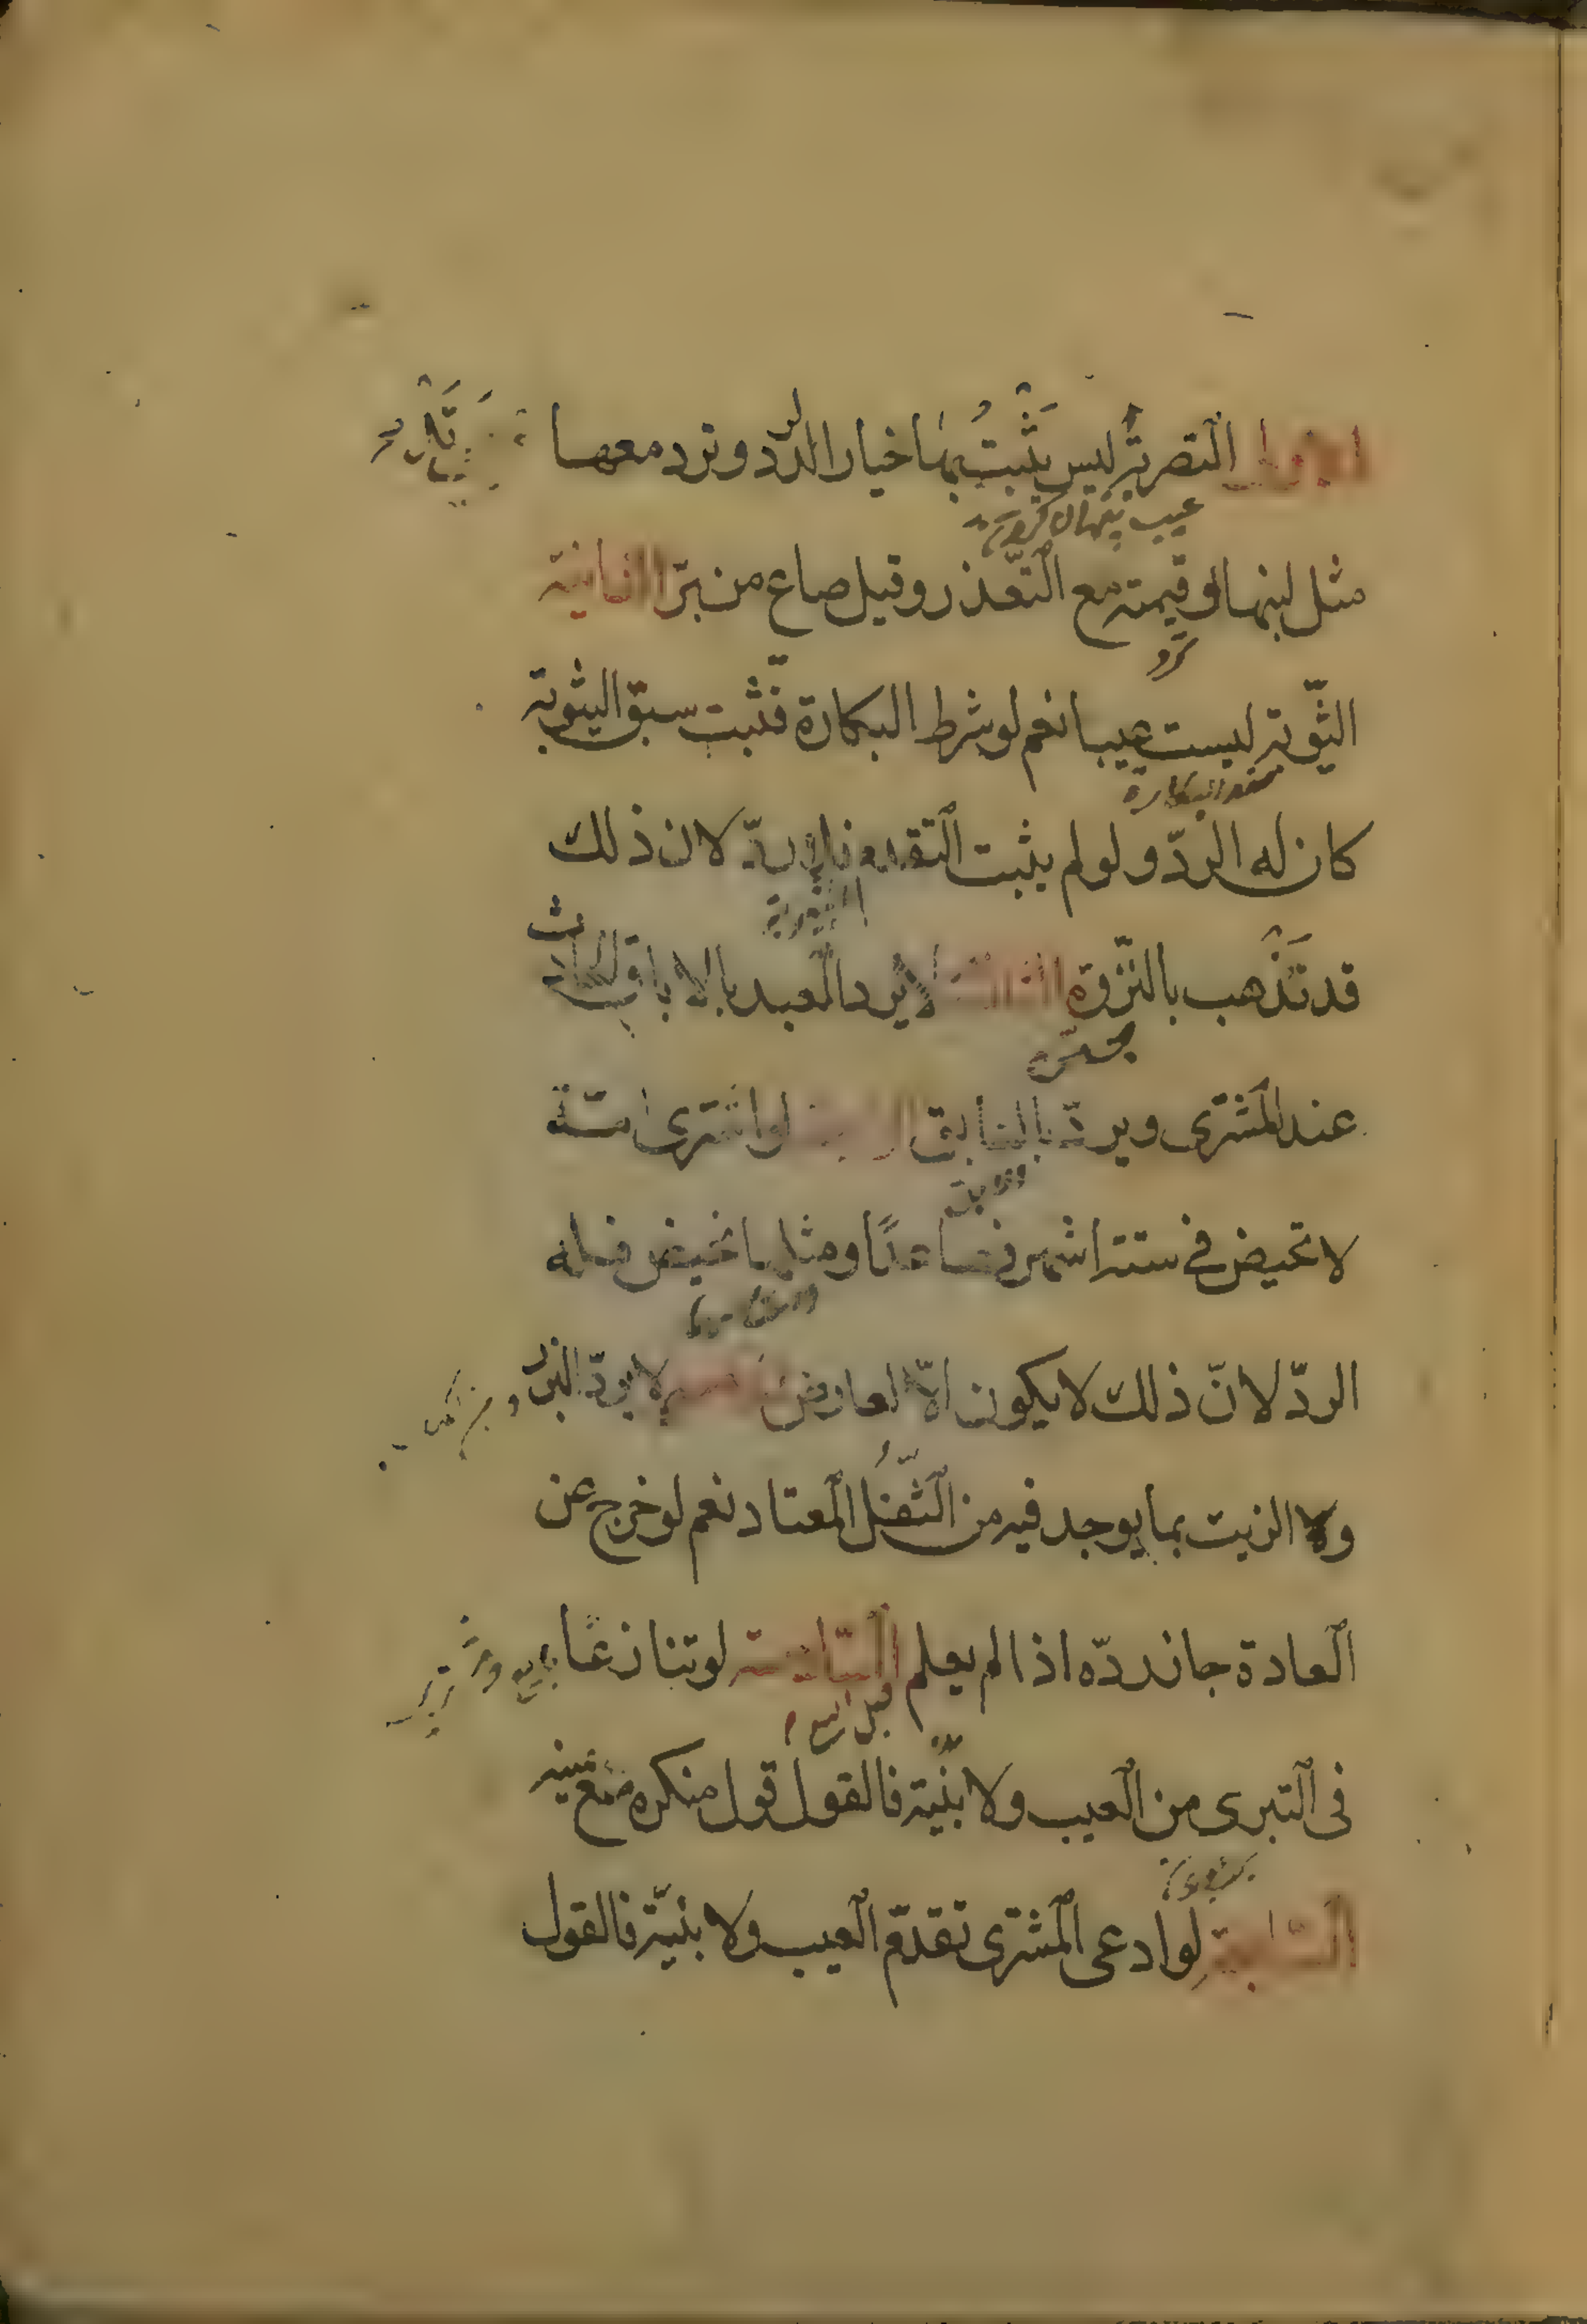 الاولى التصرية ليس يثبت بها خيار الرد وترد معها
عيب پنهان كردن
مثل لبنها او قيمته مع التعذر وقيل صاع من بر الثانية
الثيوبة ليست عيبا نعم لو شرط البكارة فثبت سبق الثيوبة
كان له الردّ ولو لم يثبت التقدم فلا ردّ لان ذلك
الثيوبة
قد تذهب بالنزوة الثالثة لا يرد العبد بالاباق الحادث
عند المشترى ويردّ بالسابق الرابعة لو اشترى امة
لا تحيض فى ستة اشهر فصاعدًا ومثلها تحيض فله
الردّ لانّ ذلك لا يكون الّا لعارض الخامسة لا يردّ البزر
ولا الزيت بما يوجد فيه من الثفل المعتاد نعم لو خرج عن
العادة جاز ردّه اذا لم يعلم السّادسة لو تنازعا
بايع و
فى التبرى من العيب ولا بنيّة فالقول قول منكره مع يمينه
السّابعة لو ادعى المشترى تقدّم العيب ولا بنيّة فالقول